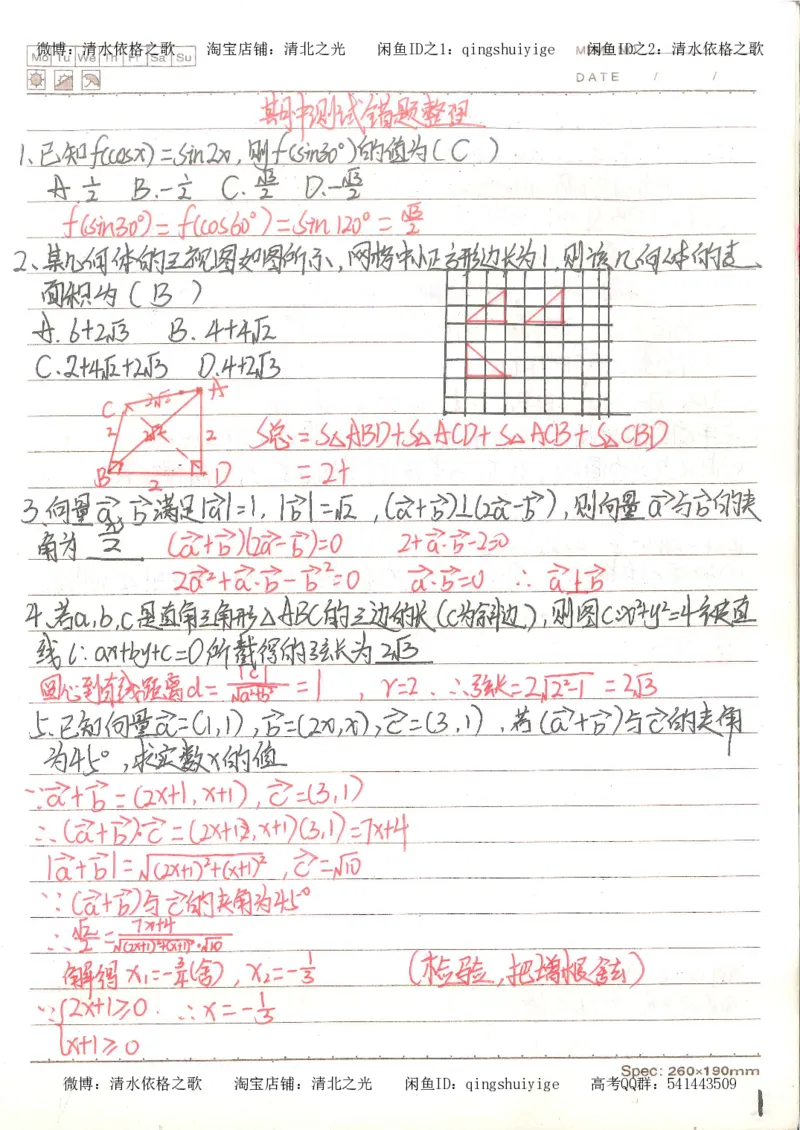 微博：清水依格之歌 淘宝店铺：清北之光 闲鱼ID之1：qingshuiyige 闲鱼ID之2：清水依格之歌
Mo Tu We Th Fr Sa Su
DATE / /
期中测试错题整理
1、已知f(cosx)=sin2x,则f(sin30°)的值为( C )
A. 1/2 B. -1/2 C. √3/2 D. -√3/2
f(sin30°)=f(cos60°)=sin120°=√3/2
2、某几何体的三视图如图所示,网格中小正方形边长为1,则该几何体的表
面积为( B )
A. 6+2√3 B. 4+4√2
C. 2+4√2+2√3 D. 4+2√3
A
C 2√2
2 2√2 2
B 2 D
S总=S△ABD+S△ACD+S△ACB+S△CBD
=2+
3、向量a⃗,b⃗满足|a⃗|=1,|b⃗|=√2,(a⃗+b⃗)⊥(2a⃗-b⃗),则向量a⃗与b⃗的夹
角为 π/2 (a⃗+b⃗)(2a⃗-b⃗)=0 2+a⃗·b⃗-2=0
2a⃗²+a⃗·b⃗-b⃗²=0 a⃗·b⃗=0 ∴a⃗⊥b⃗
4、若a,b,c是直角三角形△ABC的三边的长(c为斜边),则圆C:x²+y²=4被直
线l:ax+by+c=0所截得的弦长为2√3
圆心到直线距离d=|c|/√(a²+b²)=1,r=2.∴弦长=2√(2²-1)=2√3
5.已知向量a⃗=(1,1),b⃗=(2x,x),c⃗=(3,1).若(a⃗+b⃗)与c⃗的夹角
为45°,求实数x的值
∵a⃗+b⃗=(2x+1,x+1),c⃗=(3,1)
∴(a⃗+b⃗)·c⃗=(2x+1,x+1)(3,1)=7x+4
|a⃗+b⃗|=√((2x+1)²+(x+1)²),c⃗=√10
∵(a⃗+b⃗)与c⃗的夹角为45°
∴√2/2=(7x+4)/(√((2x+1)²+(x+1)²)·√10)
(检验,把增根舍去)
∵{2x+1≥0 ∴x=-1/3
x+1≥0
Spec: 260×190mm
微博：清水依格之歌 淘宝店铺：清北之光 闲鱼ID：qingshuiyige 高考QQ群：541443509
1